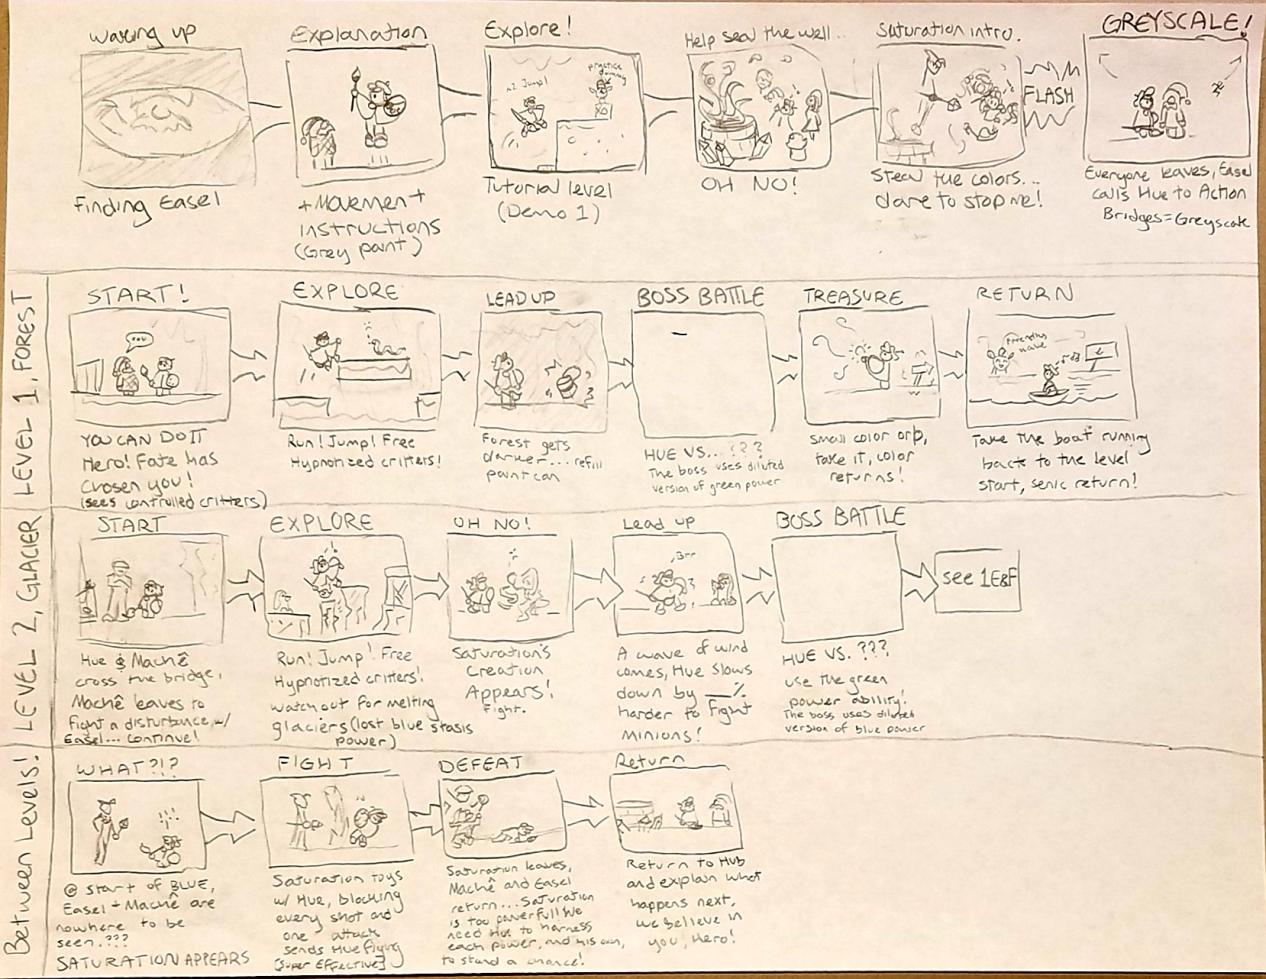 waking up
Finding Easel
Explanation
+ Movement +
instructions
(Grey paint)
Explore!
x2 Jump!
practice
dummy
Tutorial level
(Demo 1)
Help seal the well...
OH NO!
Saturation intro.
Steal the colors...
dare to stop me!
FLASH
GREYSCALE!
Everyone leaves, Easel
calls Hue to Action
Bridges=Greyscale
LEVEL 1, FOREST
START!
YOU CAN DO IT
Hero! Fate has
Chosen you!
(sees controlled critters)
EXPLORE
Run! Jump! Free
Hypnotized critters!
LEAD UP
Forest gets
darker... refill
paint can
BOSS BATTLE
HUE VS... ???
The boss uses diluted
version of green power
TREASURE
Small color orb,
take it, color
returns!
RETURN
Friendly
wave
Take the boat running
back to the level
start, senic return!
LEVEL 2, GLACIER
START
Hue & Machê
cross the bridge,
Machê leaves to
fight a disturbance, w/
Easel... continue!
EXPLORE
Run! Jump! Free
Hypnotized critters!
watch out for melting
glaciers (lost blue stasis
power)
OH NO!
Saturation's
Creation
Appears!
Fight.
Lead up
Brr
A wave of wind
comes, Hue slows
down by __%
harder to fight
Minions!
BOSS BATTLE
HUE VS. ???
use the green
power ability!
The boss uses diluted
version of blue power
see 1E&F
Between Levels!
WHAT?!?
@ start of BLUE,
Easel + Machê are
nowhere to be
seen.???
SATURATION APPEARS
FIGHT
Saturation toys
w/ Hue, blocking
every shot and
one attack
sends Hue flying
[super EFFective]
DEFEAT
Saturation leaves,
Machê and Easel
return... Saturation
is too powerful! We
need Hue to harness
each power, and his own,
to stand a chance!
Return
Return to Hub
and explain what
happens next,
we believe in
you, Hero!